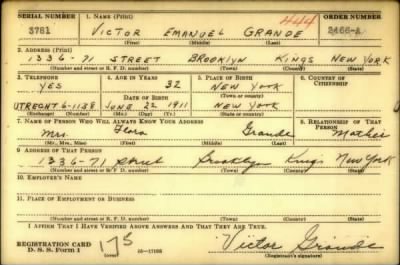 SERIAL NUMBER 1. NAME (Print) ORDER NUMBER
3781 VICTOR EMANUEL GRANDE 444 2466-A
(First) (Middle) (Last)
2. ADDRESS (Print)
1336-71 STREET BROOKLYN KINGS NEW YORK
(Number and street or R. F. D. number) (Town) (County) (State)
3. TELEPHONE 4. AGE IN YEARS 5. PLACE OF BIRTH 6. COUNTRY OF CITIZENSHIP
YES 32 NEW YORK
DATE OF BIRTH (Town or county)
UTRECHT 6-1138 JUNE 22 1911 NEW YORK
(Mo.) (Day) (Yr.) (State or country)
7. NAME OF PERSON WHO WILL ALWAYS KNOW YOUR ADDRESS 8. RELATIONSHIP OF THAT PERSON
Mrs. Flora Grande Mother
(Mr., Mrs., Miss) (First) (Middle) (Last)
9. ADDRESS OF THAT PERSON
1336-71 Street Brooklyn Kings New York
(Number and street or R. F. D. number) (Town) (County) (State)
10. EMPLOYER'S NAME
11. PLACE OF EMPLOYMENT OR BUSINESS
(Number and street or R. F. D. number) (Town) (County) (State)
I AFFIRM THAT I HAVE VERIFIED ABOVE ANSWERS AND THAT THEY ARE TRUE.
REGISTRATION CARD
D. S. S. Form 1 Victor Grande
(Registrant's signature)